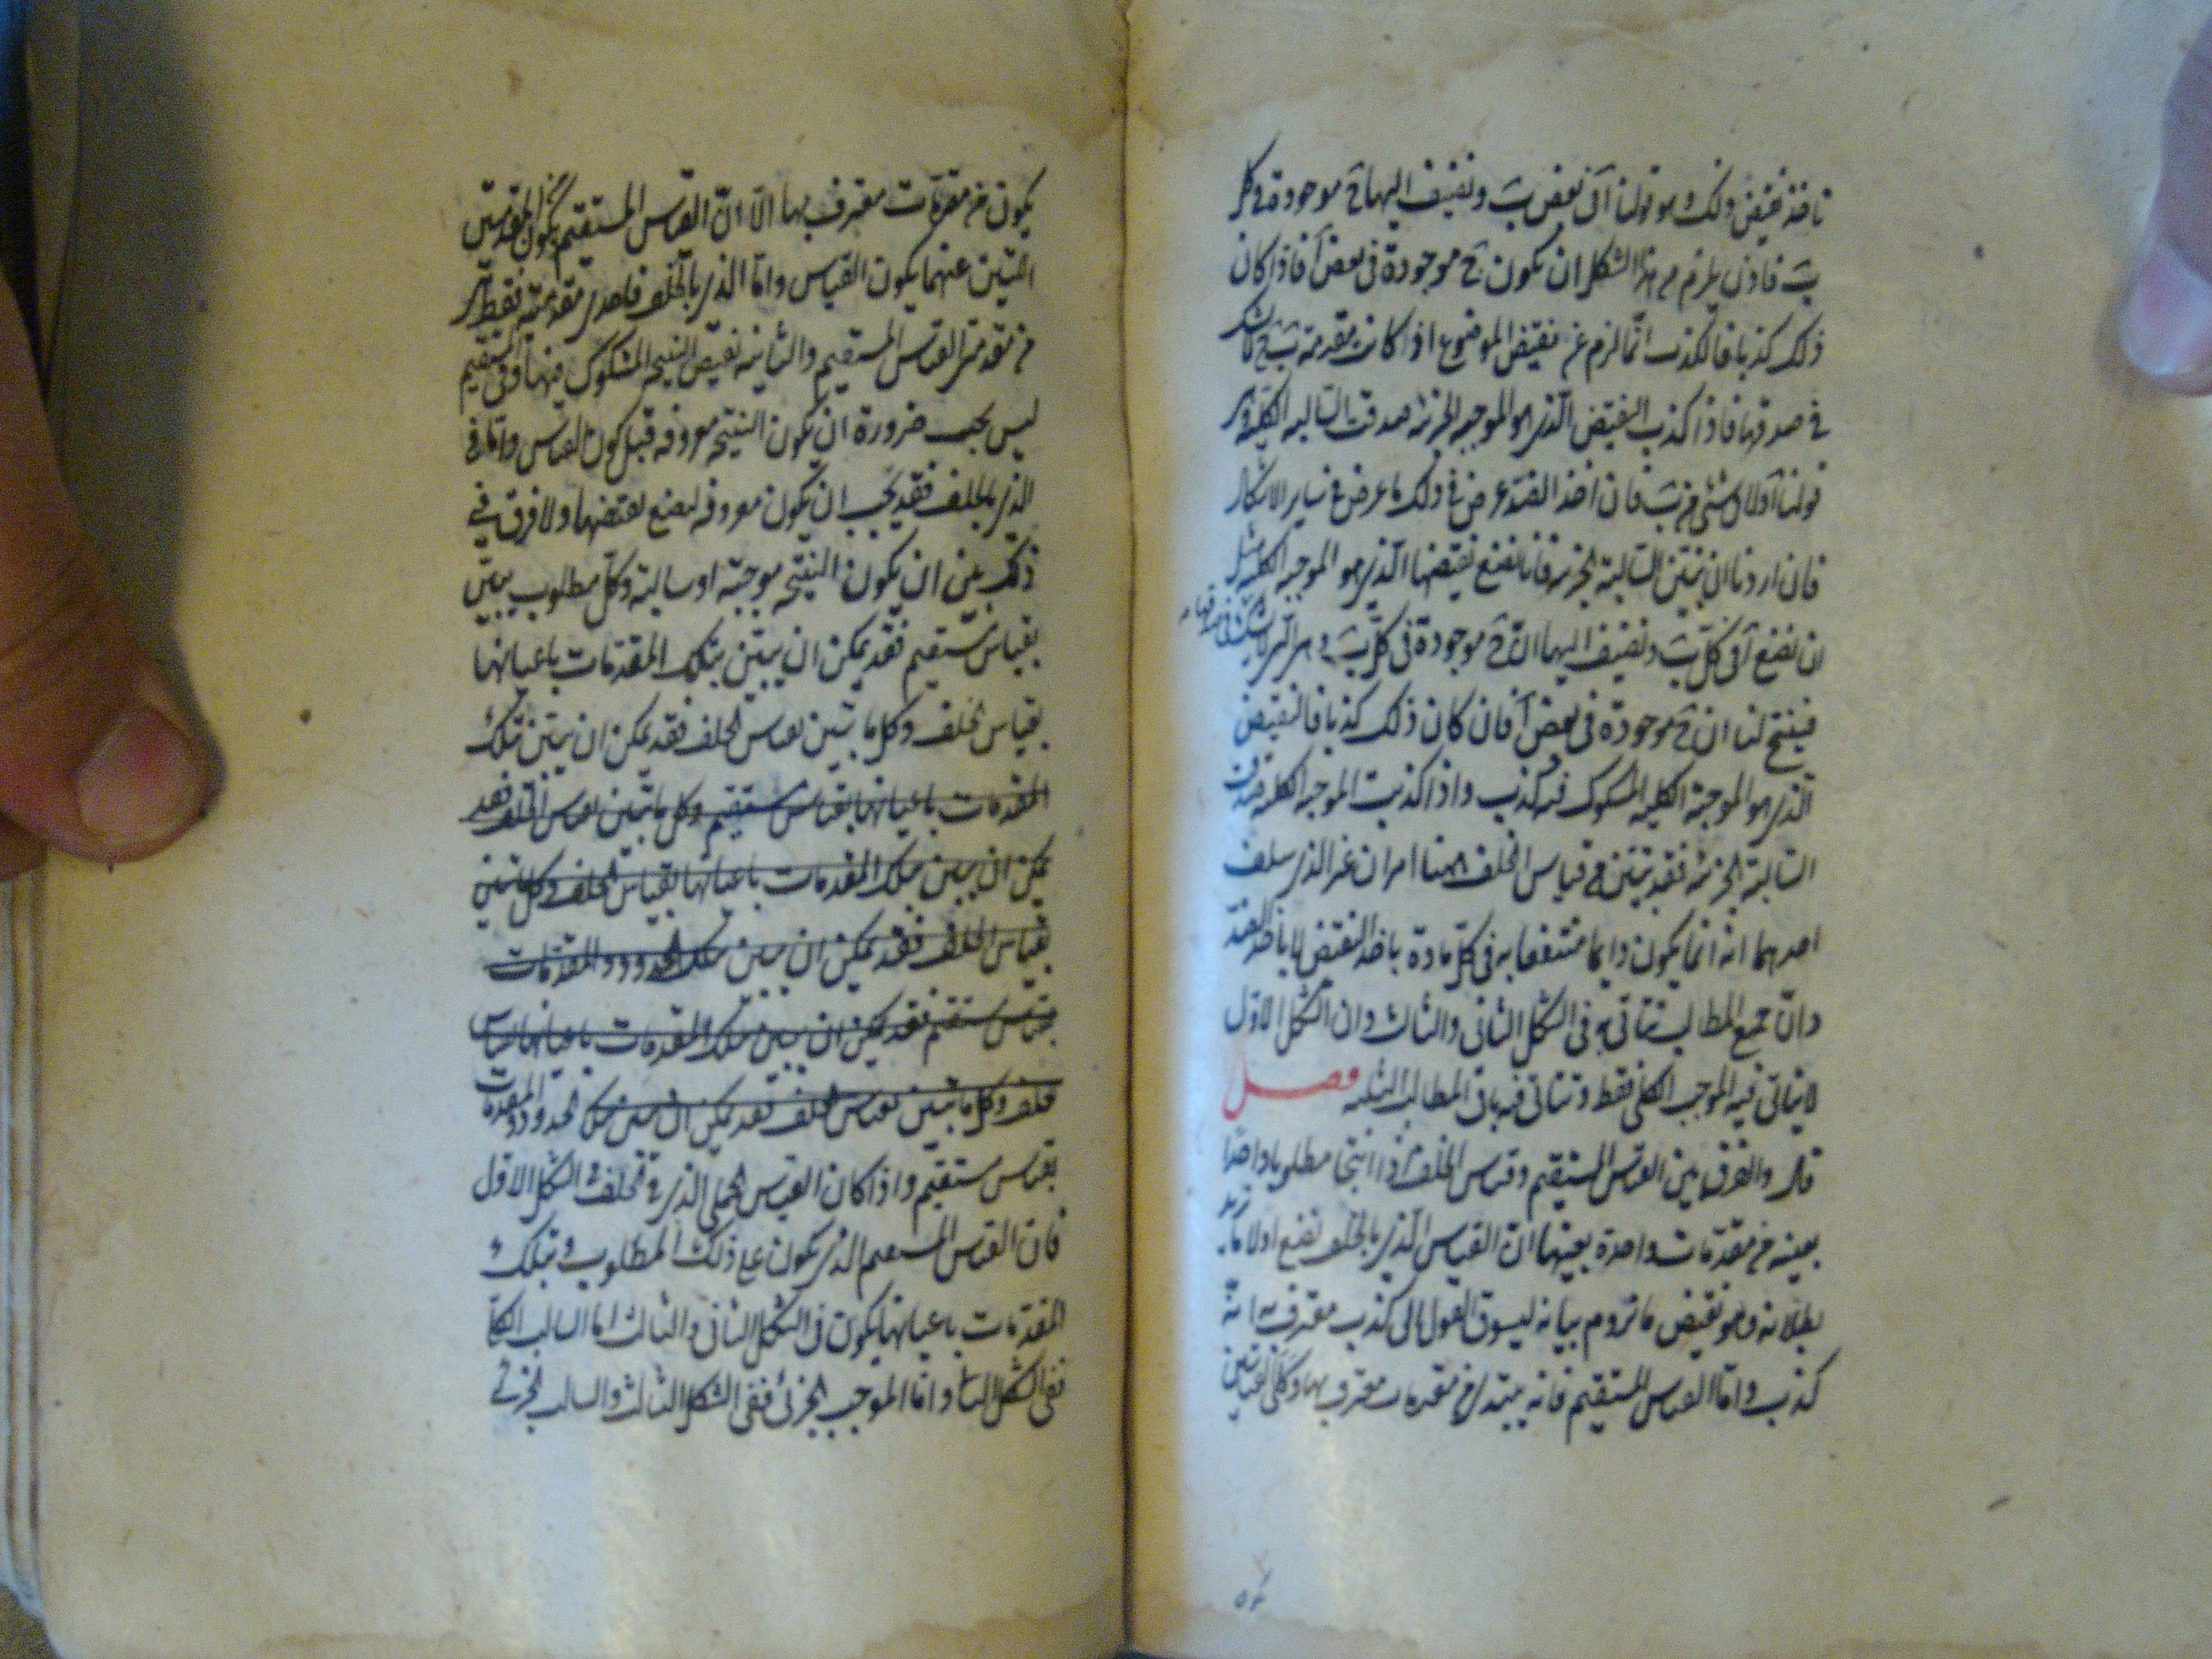 ناخذ نقيض ذلك وهو قولنا آ في بعض ب ونضيف اليها ح موجودة في كل
ب فاذن يلزم من هذا الشكل ان يكون ح موجودة في بعض آ فاذا كان
ذلك كذبا فالكذب انما لزم عن نقيض الموضوع اذا كانت مقدمة ب ح لا شك
في صدقها فاذا كذب النقيض الذي هو الموجبه الجزئيه صدقت السالبه الكليه وهي
قولنا آ ولا في شئ من ب فان اخذ الضد عرض في ذلك ما عرض في ساير الاشكال
فان اردنا ان نبين السالبة الجزئيه فانا نضع نقيضها الذي هو الموجبه الكليه مثل
ان نضع آ في كل ب ونضيف اليها ان ح موجودة في كل ب وهي التي لا يشك في صدقها
فينتج لنا ان ح موجودة في بعض آ فان كان ذلك كذبا فالنقيض
الذي هو الموجبة الكليه المشكوك فيه كذب واذا كذبت الموجبه الكليه صدقت
السالبة الجزئيه فقد تبين في قياس الخلف ههنا امران غير الذي سلف
احدهما انه انما يكون دايما منتفعا به في كل مادة باخذ النقيض لا باخذ الضد
وان جميع المطالب تتاتى به في الشكل الثاني والثالث وان الشكل الاول
لا يتاتى فيه الموجب الكلي فقط وتتاتى فيه باقي المطالب الثلثه فصل
قال والفرق بين القياس المستقيم وقياس الخلف اذا انتجا مطلوبا واحدا
بعينه من مقدمات واحدة بعينها ان القياس الذي بالخلف نضع اولا ما نريد
بطلانه وهو نقيض ما نروم بيانه ليسوق القول الى كذب معترف به انه
كذب واما القياس المستقيم فانه يبتدئ من مقدمات معترف بها وكلى القياسين
يكون من مقدمات معترف بها الا ان القياس المستقيم يكون المقدمتين
اللتين عنهما يكون القياس واما الذي بالخلف فاحدى مقدمتيه فقط هي
من مقدمتي القياس المستقيم والثانيه نقيض النتيجه المشكوك فيها وفي المستقيم
ليس يجب ضرورة ان يكون النتيجه معروفه قبل كون القياس واما في
الذي بالخلف فقد يجب ان يكون معروفه ليضع نقيضها ولا فرق في
ذلك بين ان يكون النتيجه موجبة او سالبة وكل مطلوب يبين
بقياس مستقيم فقد يمكن ان يبين بتلك المقدمات باعيانها
بقياس الخلف وكل ما تبين بقياس الخلف فقد يمكن ان يبين بتلك
المقدمات باعيانها بقياس مستقيم وكل ما تبين بقياس الخلف فقد
يمكن ان يبين بتلك المقدمات باعيانها بقياس الخلف وكل ما تبين
بقياس الخلف فقد يمكن ان يبين بتلك الحدود والمقدمات
بقياس مستقيم فقد يمكن ان يبين بتلك المقدمات باعيانها بقياس
خلف وكل ما تبين بقياس خلف فقد يمكن ان يبين بتلك الحدود والمقدمات
بقياس مستقيم واذا كان القياس الحملي الذي في الخلف في الشكل الاول
فان القياس المستقيم الذي يكون على ذلك المطلوب وبتلك
المقدمات باعيانها يكون في الشكل الثاني والثالث اما السالب الكلي
ففي الشكل الثاني واما الموجب الجزئي ففي الشكل الثالث والسالب الجزئي